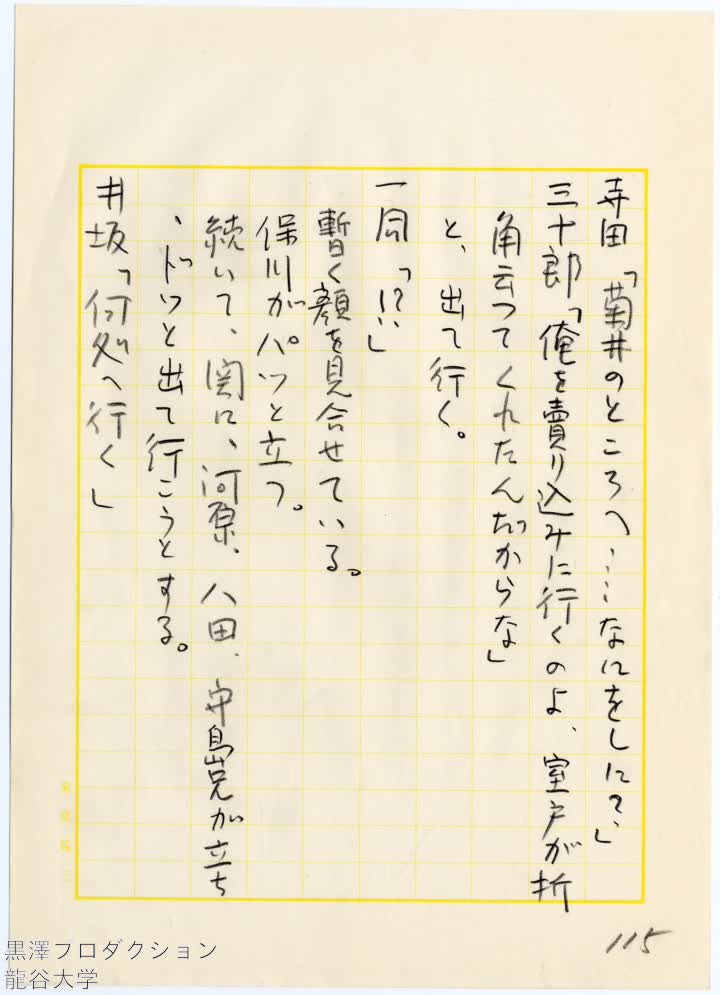 寺田「菊井のところへ……なにをしに？」
三十郎「俺を賣り込みに行くのよ、室戸が折
角云つてくれたんだからな」
と、出て行く。
一同「!?…」
暫く顔を見合せている。
保川がパッと立つ。
続いて、関口、河原、八田、守島兄が立ち
、ドッと出て行こうとする。
井坂「何処へ行く」
115
黒澤プロダクション
龍谷大学